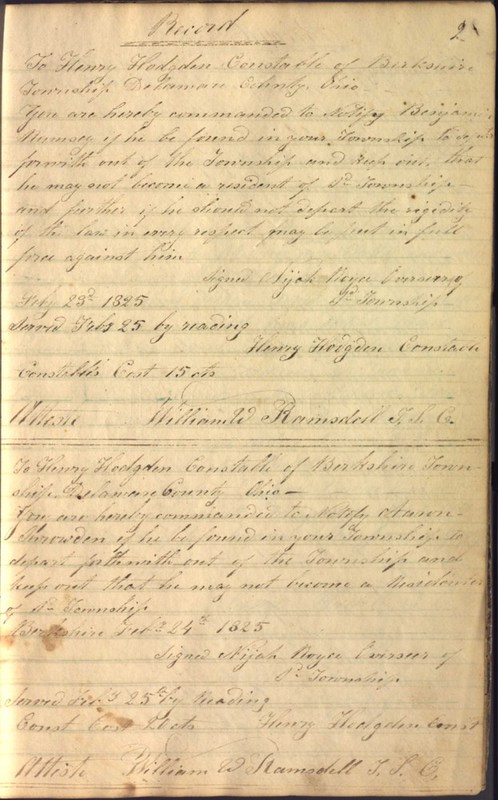 Record 2
To Henry Hodgden Constable of Berkshire
Township Delaware County Ohio
You are hereby commanded to Notify Benjami
Rumsey if he be found in your Township to depart
forwith out of the Township and keep out, that
he may not become a resident of Sd Township
and further if he should not depart the rigidity
of the law in every respect may be put in full
force against him
Signed Nijah Royce Overseer of
Feby 23d 1825 Sd Township
Served Feby 25 by reading
Henry Hodgden Constable
Constable's Cost 15 cts
Attest William W Ramsdell T. S. C.
To Henry Hodgden Constable of Berkshire Town-
ship Delaware County Ohio—
You are hereby commanded to Notify Aaron
if he be found in your Township to
depart forthwith out of the Township and
keep out that he may not become a Resident
of Sd Township
Berkshire Feby 24th 1825
Signed Nijah Royce Overseer of
Sd Township
Served Feby 25th by Reading
Const Cost 20 cts Henry Hodgden Const
Attest William W Ramsdell T. S. C.